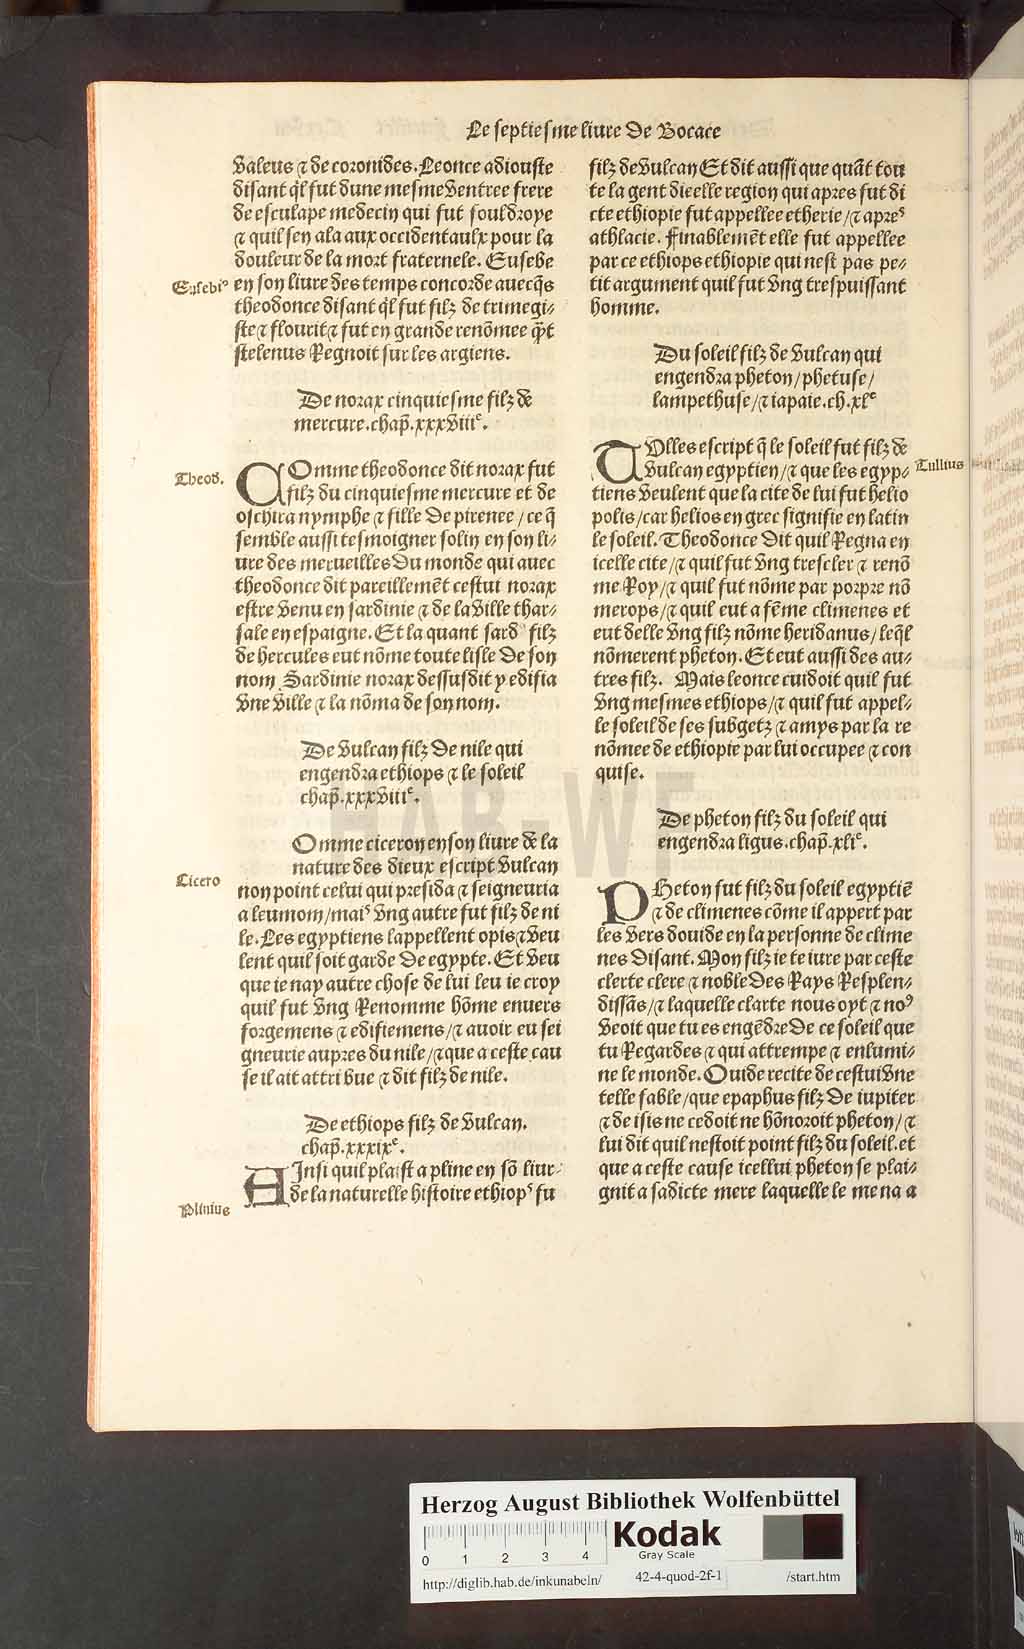 Le septiesme liure de Bocace
valeus ⁊ de coronides. Leonce adiouste
disant q̃l fut dune mesme ventree frere
de esculape medecin qui fut fouldroye
⁊ quil sen ala aux occidentaulx pour la
douleur de la mort fraternele. Eusebe
Eusebiꝰ
en son liure des temps concorde auecq̃s
theodonce disant q̃l fut filz de trimegi-
ste ⁊ flourit ⁊ fut en grande renõmee q̃t
stelenus Regnoit sur les argiens.
De norax cinquiesme filz de
mercure. chap̃. xxxviiiᵉ.
Theod.
COmme theodonce dit norax fut
filz du cinquiesme mercure et de
oschira nymphe ⁊ fille de pirenee / ce q̃
semble aussi tesmoigner solin en son li-
ure des merueilles du monde qui auec
theodonce dit pareillemẽt cestui norax
estre venu en sardinie ⁊ de la ville thar-
sale en espaigne. Et la quant sardꝰ filz
de hercules eut nõme toute lisle de son
nom Sardinie norax dessusdit y edifia
vne ville ⁊ la nõma de son nom.
De vulcan filz de nile qui
engendra ethiops ⁊ le soleil
chap̃. xxxviiiᵉ.
Omme ciceron en son liure de la
nature des dieux escript vulcan
Cicero
non point celui qui presida ⁊ seigneuria
a leumom / maiˢ vng autre fut filz de ni
le. Les egyptiens lappellent opis ⁊ veu
lent quil soit garde de egypte. Et veu
que ie nay autre chose de lui leu ie croy
quil fut vng Renomme hõme enuers
forgemens ⁊ edifiemens / ⁊ auoir eu sei
gneurie aupres du nile / ⁊ que a ceste cau
se il ait attribue ⁊ dit filz de nile.
De ethiops filz de vulcan.
chap̃. xxxixᵉ.
AInsi quil plaist a pline en sõ liur
de la naturelle histoire ethiopˢ fu
Plinius
filz de vulcan Et dit aussi que quãt tou
te la gent dicelle region qui apres fut di
cte ethiopie fut appellee etherie / ⁊ apreˢ
athlacie. Finablemẽt elle fut appellee
par ce ethiops ethiopie qui nest pas pe-
tit argument quil fut vng trespuissant
homme.
Du soleil filz de vulcan qui
engendra pheton / phetuse /
lampethuse / ⁊ iapaie. ch. xlᵉ
TUlles escript q̃ le soleil fut filz de
vulcan egyptien / ⁊ que les egyp-
Tullius
tiens veulent que la cite de lui fut helio
polis / car helios en grec signifie en latin
le soleil. Theodonce dit quil Regna en
icelle cite / ⁊ quil fut vng trescler ⁊ renõ
me Roy / ⁊ quil fut nõme par porpre nõ
merops / ⁊ quil eut a fẽme climenes et
eut delle vng filz nõme heridanus / leq̃l
nõmerent pheton. Et eut aussi des au-
tres filz. Mais leonce cuidoit quil fut
vng mesmes ethiops / ⁊ quil fut appel-
le soleil de ses subgetz ⁊ amys par la re
nõmee de ethiopie par lui occupee ⁊ con
quise.
De pheton filz du soleil qui
engendra ligus. chap̃. xliᵉ.
PHeton fut filz du soleil egyptiẽ
⁊ de climenes cõme il appert par
les vers douide en la personne de clime
nes disant. Mon filz ie te iure par ceste
clerte clere ⁊ noble des Rays Resplen-
dissãs / ⁊ laquelle clarte nous oyt ⁊ noꝰ
veoit que tu es engẽdre de ce soleil que
tu Regardes ⁊ qui attrempe ⁊ enlumi-
ne le monde. Ouide recite de cestui vne
telle fable / que epaphus filz de iupiter
⁊ de isis ne cedoit ne hõnoroit pheton / ⁊
lui dit quil nestoit point filz du soleil. et
que a ceste cause icellui pheton se plai-
gnit a sadicte mere laquelle le mena a
HAB-WF
Herzog August Bibliothek Wolfenbüttel
0 1 2 3 4
Kodak
Gray Scale
http://diglib.hab.de/inkunabeln/ 42-4-quod-2f-1 /start.htm